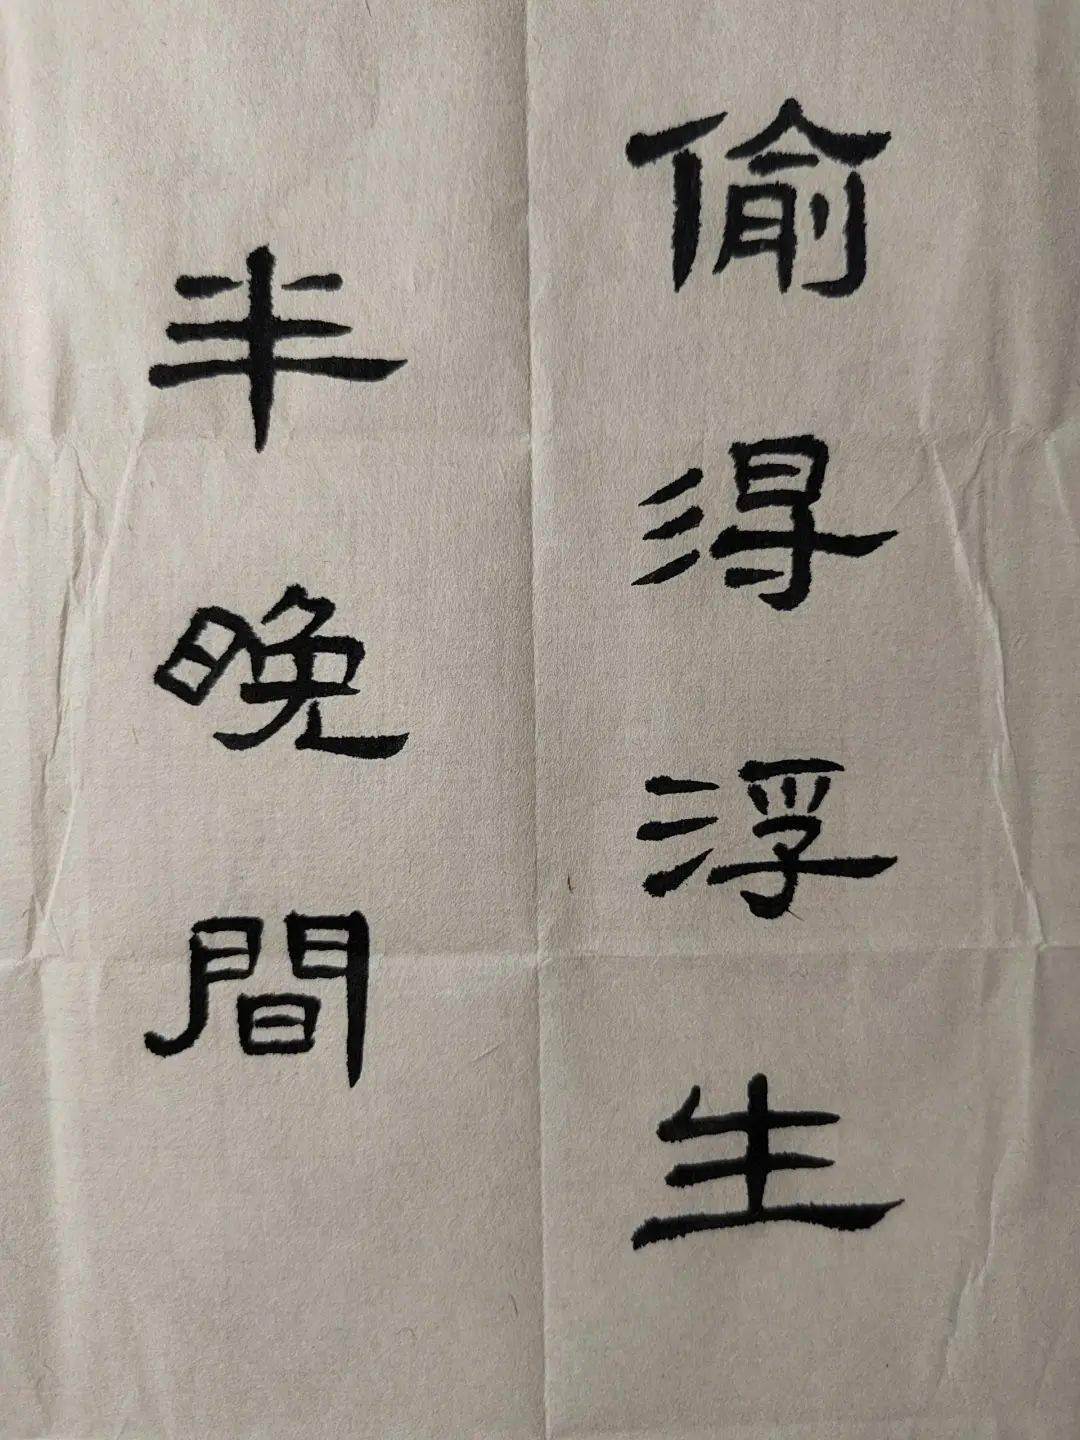 偷得浮生
半晚間